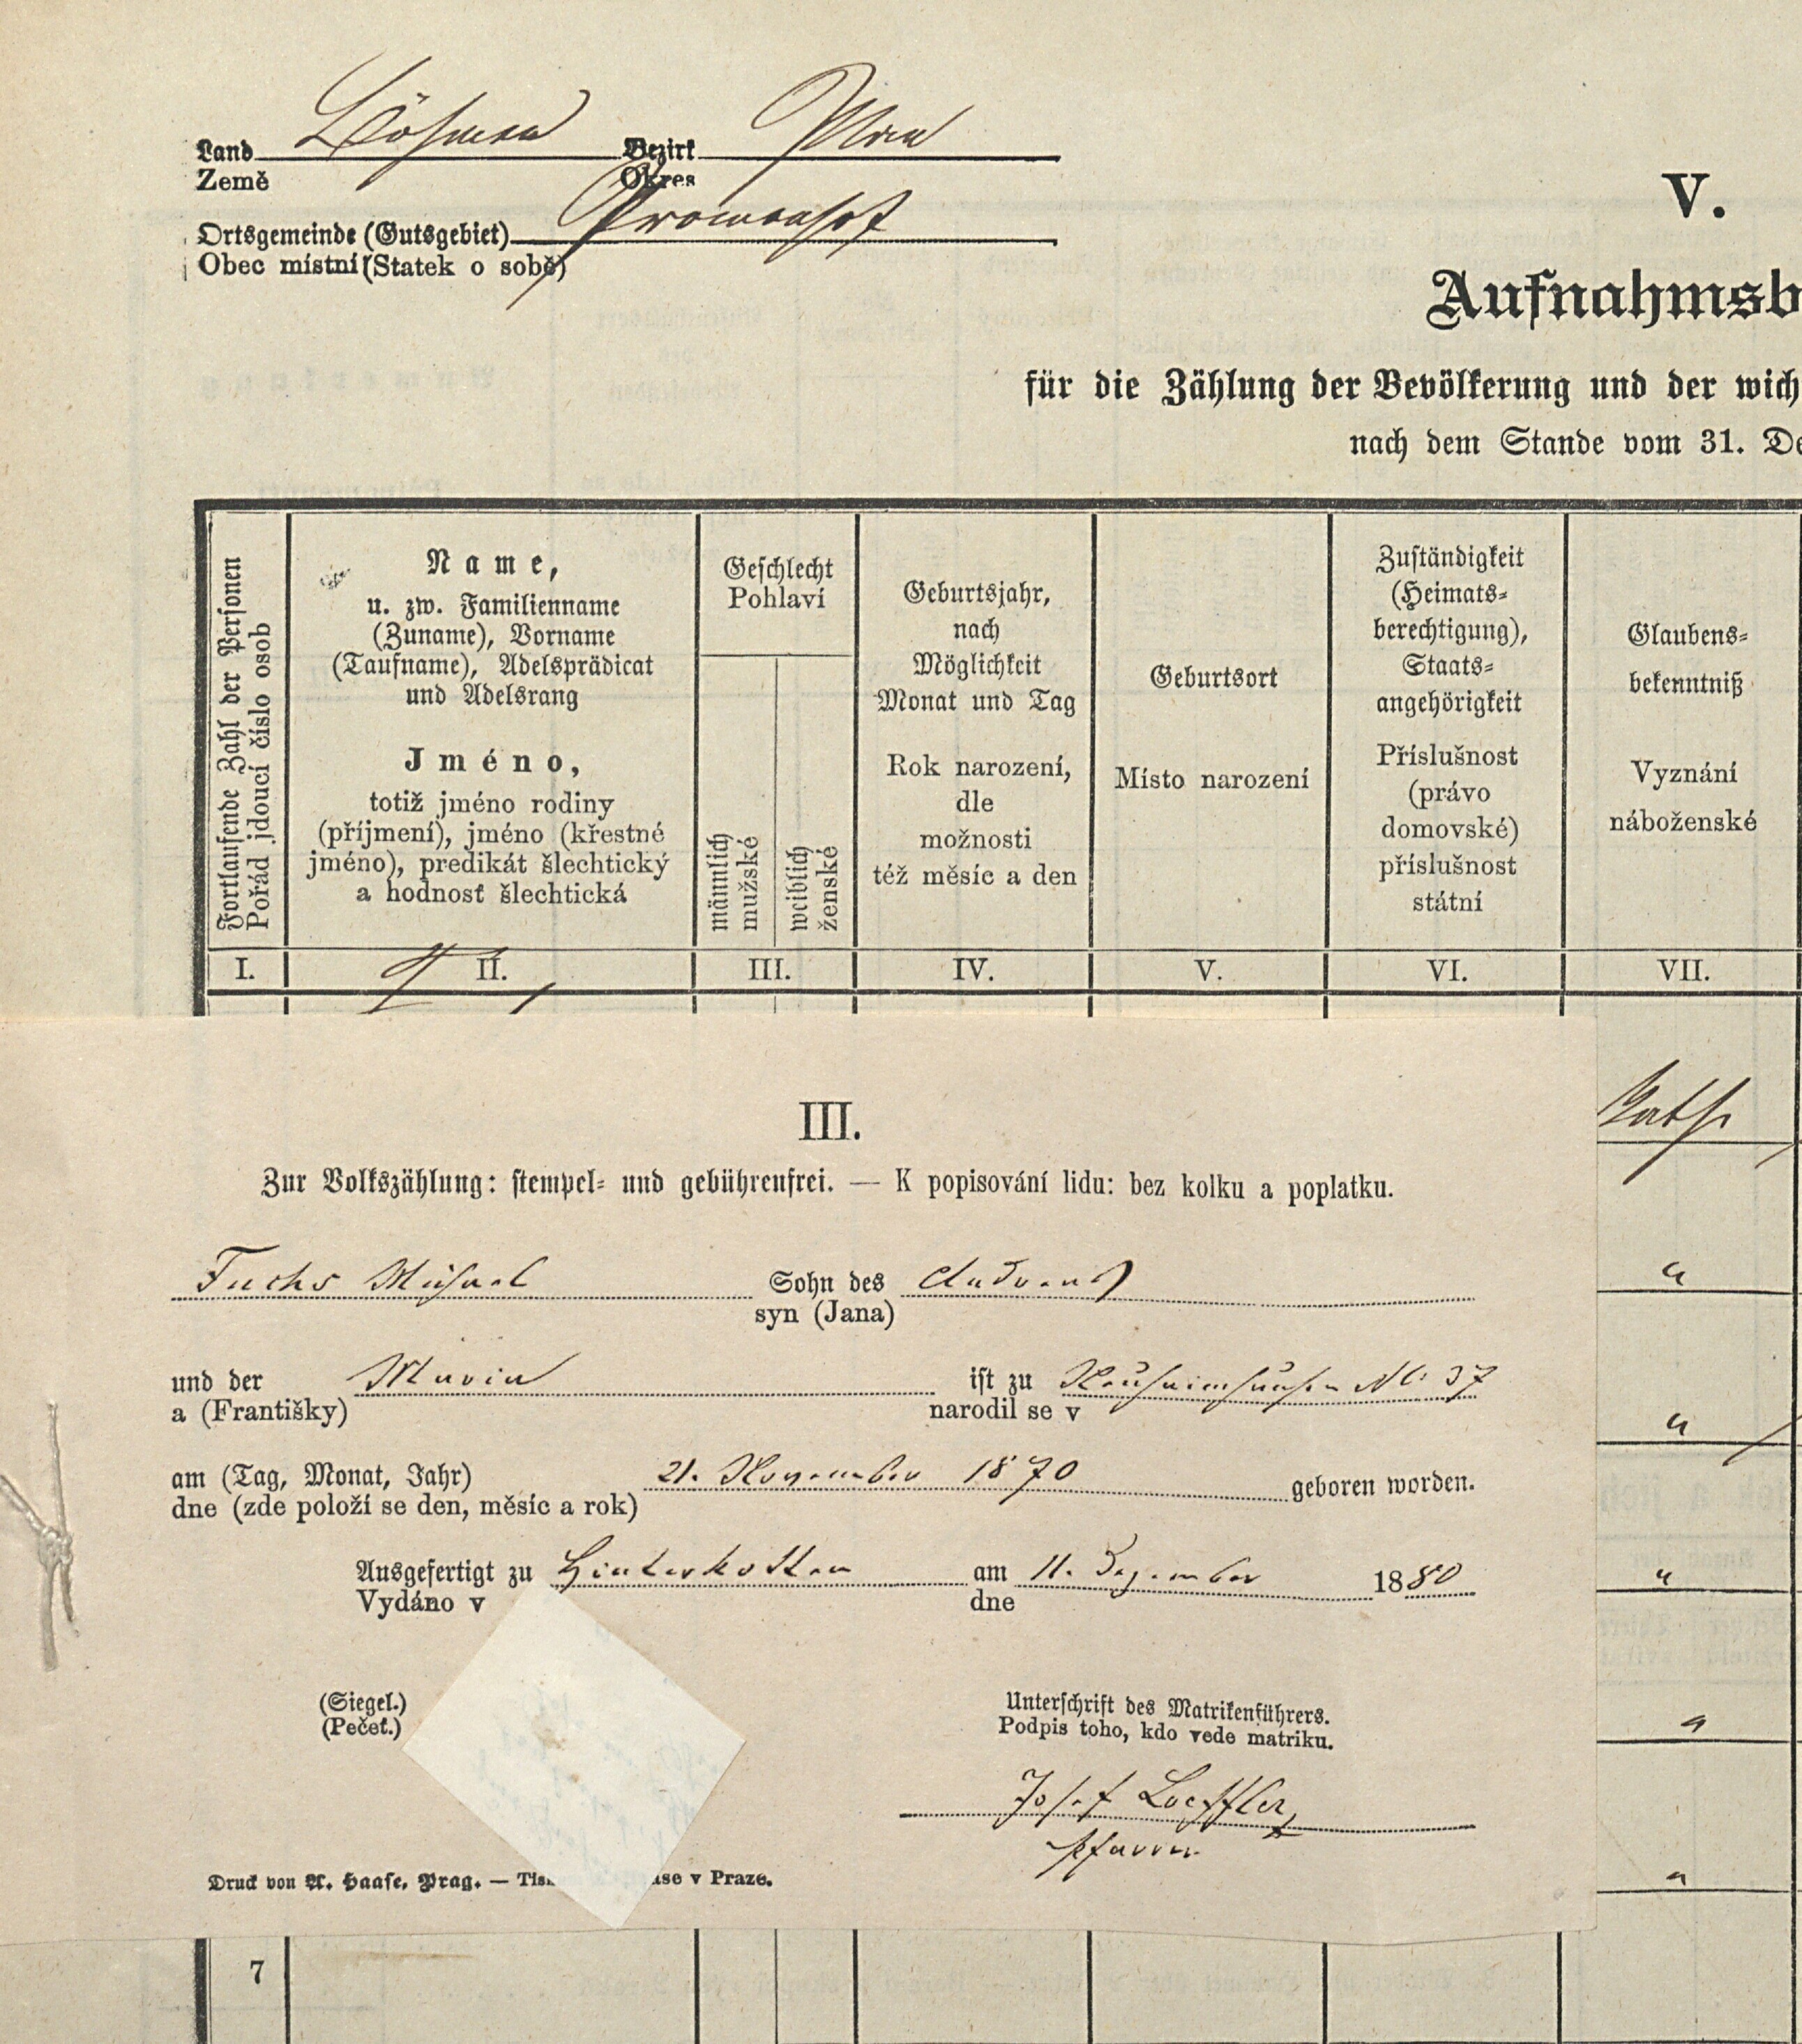 Land Böhmen Bezirk Plan
Země Okres
Ortsgemeinde (Gutsgebiet) Promenhof
Obec místní (Statek o sobě)
V.
Aufnahmsb
für die Zählung der Bevölkerung und der wich
nach dem Stande vom 31. De
Fortlaufende Zahl der Personen
Pořád jdoucí číslo osob
Name,
u. zw. Familienname
(Zuname), Vorname
(Taufname), Adelsprädicat
und Adelsrang
Jméno,
totiž jméno rodiny
(příjmení), jméno (křestné
jméno), predikát šlechtický
a hodnosť šlechtická
Geschlecht
Pohlaví
männlich
mužské
weiblich
ženské
Geburtsjahr,
nach
Möglichkeit
Monat und Tag
Rok narození,
dle
možnosti
též měsíc a den
Geburtsort
Místo narození
Zuständigkeit
(Heimats-
berechtigung),
Staats-
angehörigkeit
Příslušnost
(právo
domovské)
příslušnost
státní
Glaubens-
bekenntniß
Vyznání
náboženské
I. II. III. IV. V. VI. VII.
Kath
"
"
"
"
"
III.
Zur Volkszählung: stempel- und gebührenfrei. — K popisování lidu: bez kolku a poplatku.
Fuchs Michael Sohn des Andreas
syn (Jana)
und der Maria ist zu Neuhaimhausen No: 37
a (Františky) narodil se v
am (Tag, Monat, Jahr) 21. November 1870 geboren worden.
dne (zde položí se den, měsíc a rok)
Ausgefertigt zu Hinterkotten am 11. Dezember 1880
Vydáno v dne
(Siegel.)
(Pečeť.)
Unterschrift des Matrikenführers.
Podpis toho, kdo vede matriku.
Josef Loeffler,
Pfarrer
Druck von A. Haase, Prag. — v Praze.
7